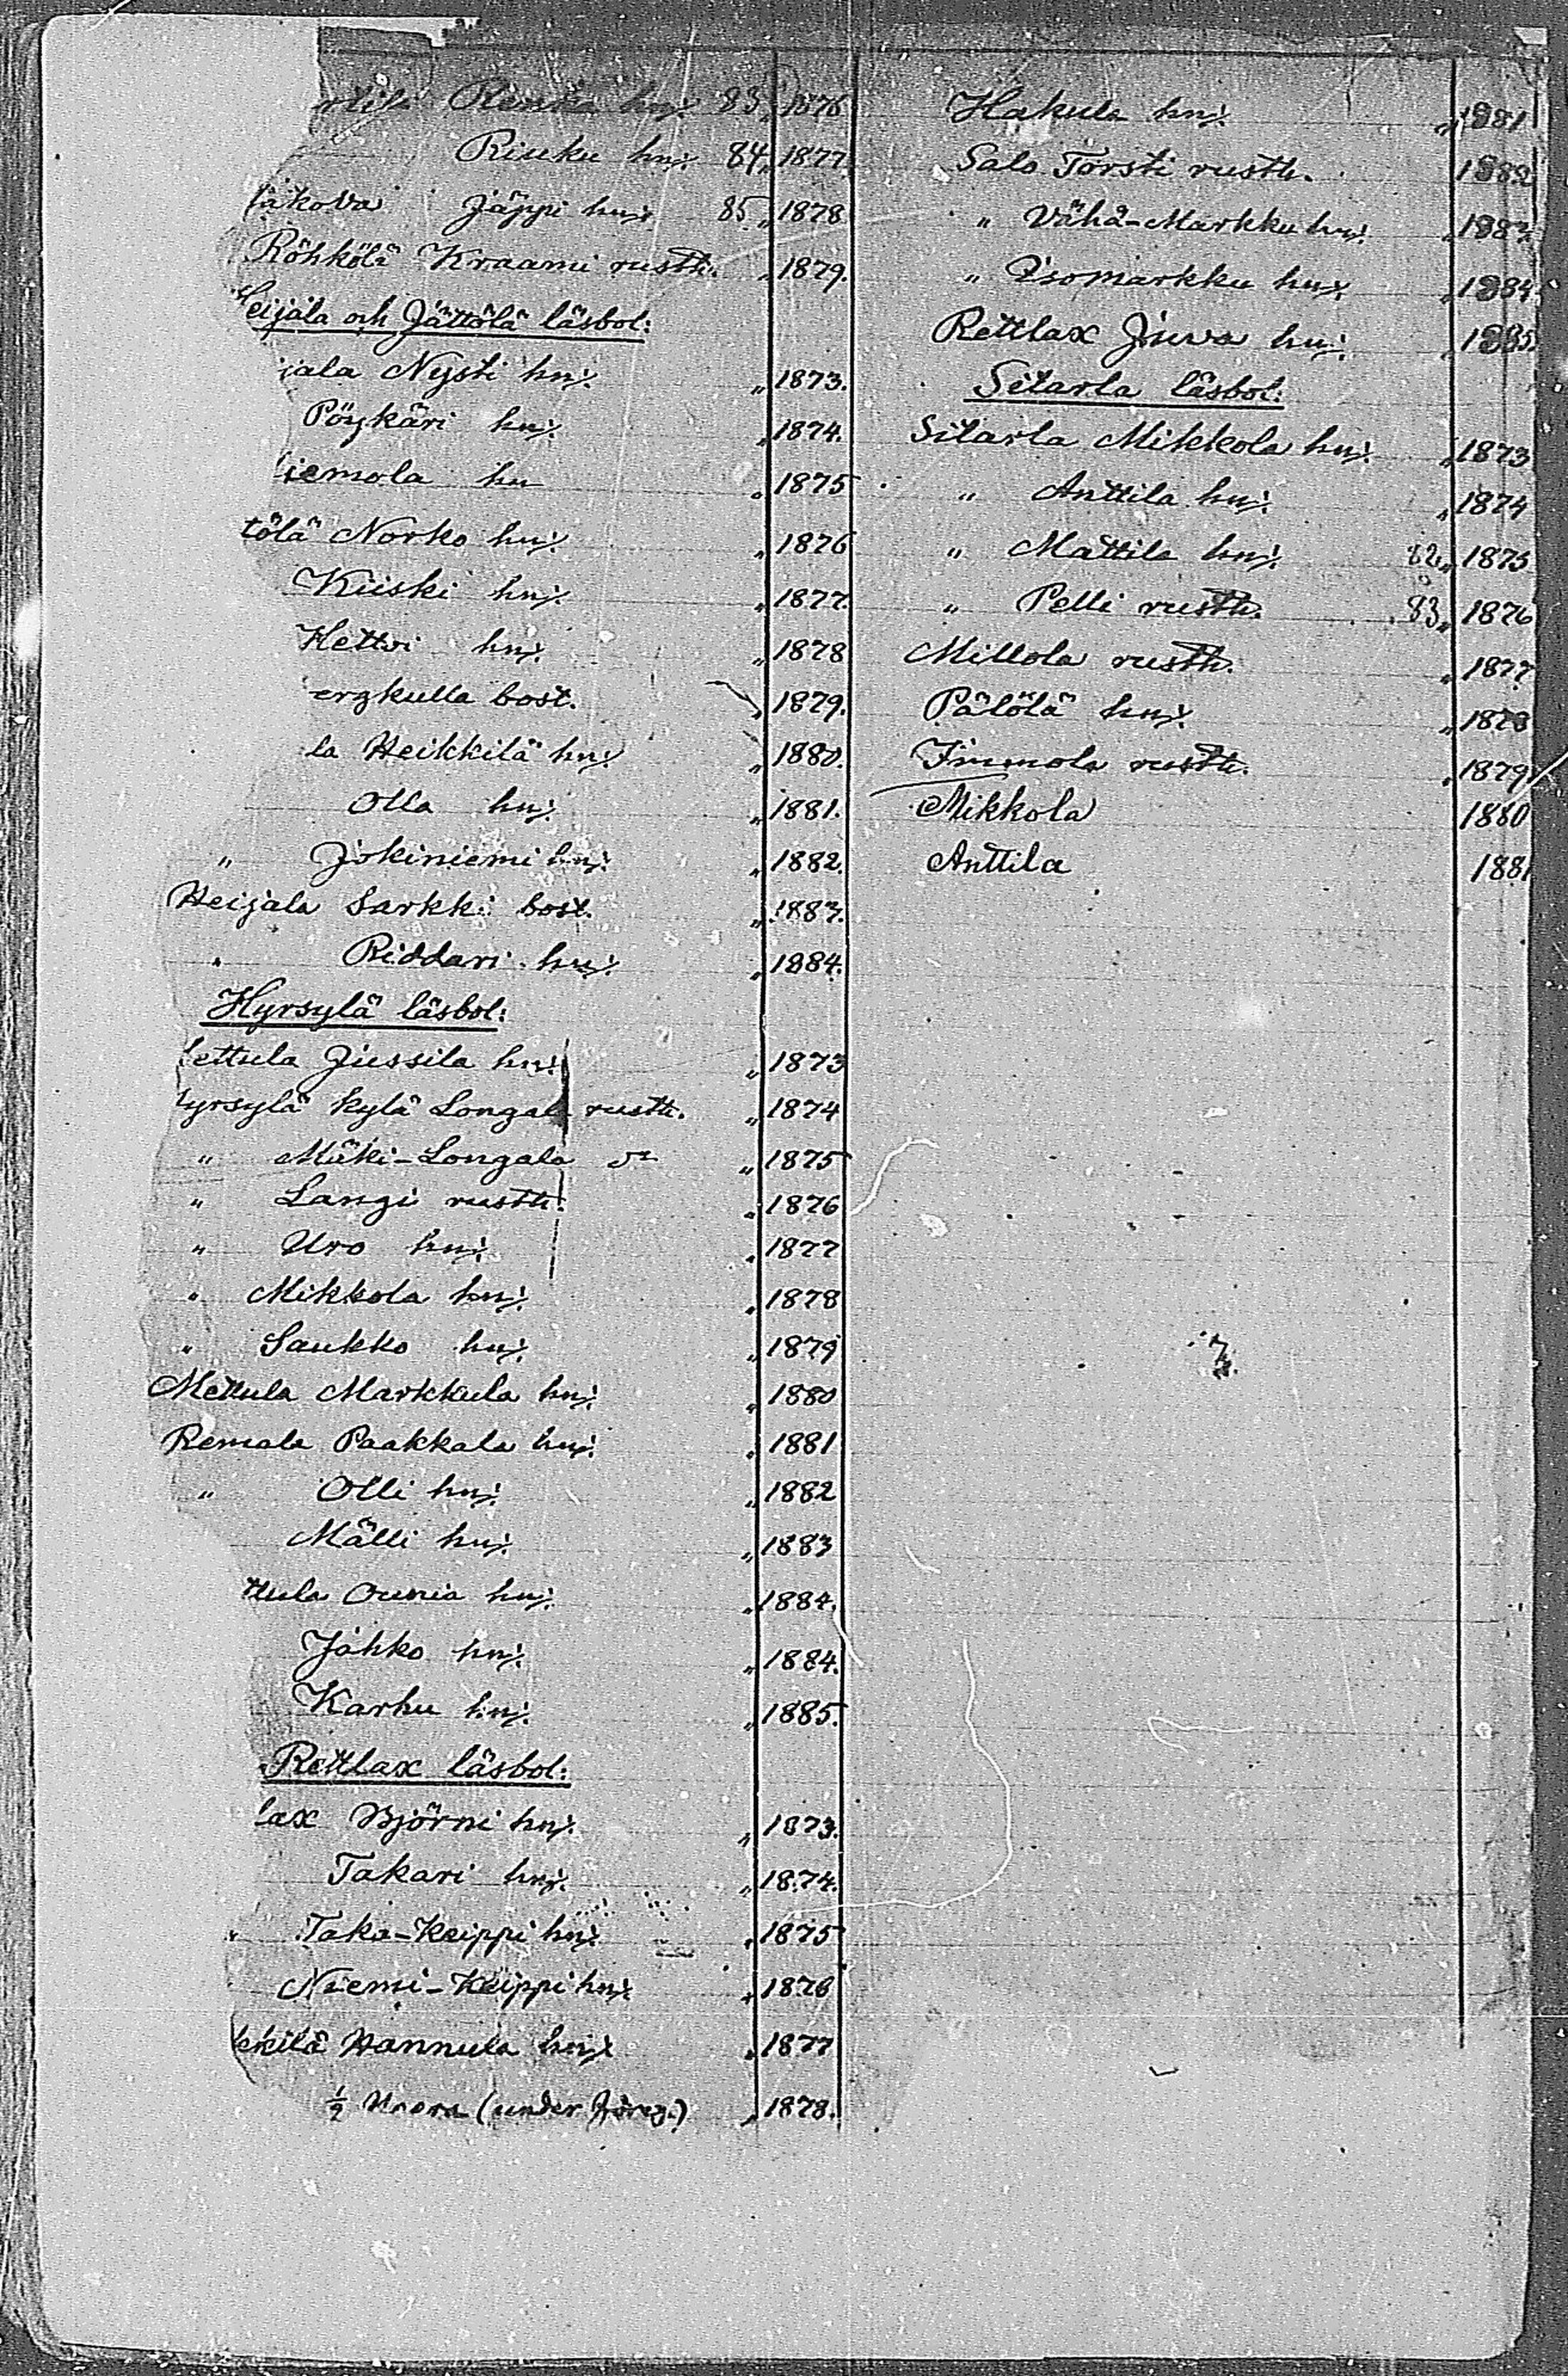 Renka hm: 83„ 1876
Riuku hm: 84„ 1877.
äkova Jäppi hm: 85„ 1878
Röhkölä Kraami rusth. „ 1879.
Heijala och Jättölä läsbol:
jala Nysti hm: „ 1873.
Pöykäri hm: „ 1874.
iemola hm „ 1875
tölä Norko hm: „ 1876
Kiiski hm: „ 1877.
Hettvi hm: „ 1878
ergkulla bost. „ 1879.
la Heikkilä hm: „ 1880.
Olla hm: „ 1881.
„ Jokiniemi hm: „ 1882.
Heijala Sarkki bost. „ 1883.
„ Riddari hm: „ 1884.
Hyrsylä läsbol:
ettula Jussila hm: „ 1873
yrsylä kylä Longala rusth. „ 1874
„ Mäki-Longala „ 1875
„ Langi rusth. „ 1876
„ Uro hm: „ 1877
„ Mikkola hm: „ 1878
„ Saukko hm: „ 1879
Mettula Markkula hm: „ 1880
Remala Paakkala hm: „ 1881
„ Olli hm: „ 1882
Mälli hm: „ 1883
ttula Ounia hm: „ 1884.
Jähko hm: „ 1884.
Karhu hm: „ 1885.
Rettlax läsbol:
lax Björni hm: „ 1873.
Takari hm: „ 1874.
„ Taka-Keippi hm: „ 1875
Niemi-Keippi hm: „ 1876
kkilä Hannula hm: „ 1877
½ (under föreg.) „ 1878.
Hakula hm: „ 1881
Salo Torsti rusth. 1882
„ Vähä-Markku hm: „ 1883.
„ Isomarkku hm: „ 1884.
Rettlax Juva hm: „ 1885.
Sitarla läsbol:
Sitarla Mikkola hm: „ 1873
„ Anttila hm: „ 1874
„ Mattila hm: 82„ 1875
„ Pelli rusth. 83„ 1876
Millola rusth. „ 1877
Pälölä hm: „ 1878
Immola rusth. „ 1879
Mikkola 1880
Anttila 1881